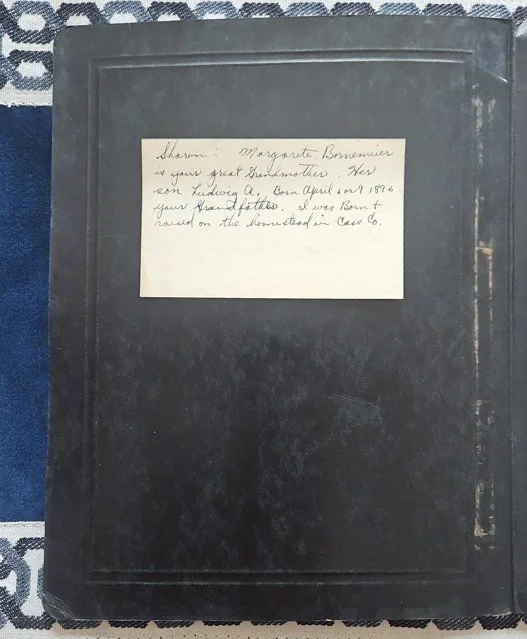 Sharon: Margarete Bornemeier
is your great Grandmother. Her
son Ludwig A. Born April 6 or 9 1896
your Grandfather. I was Born +
raised on the homestead in Cass Co.